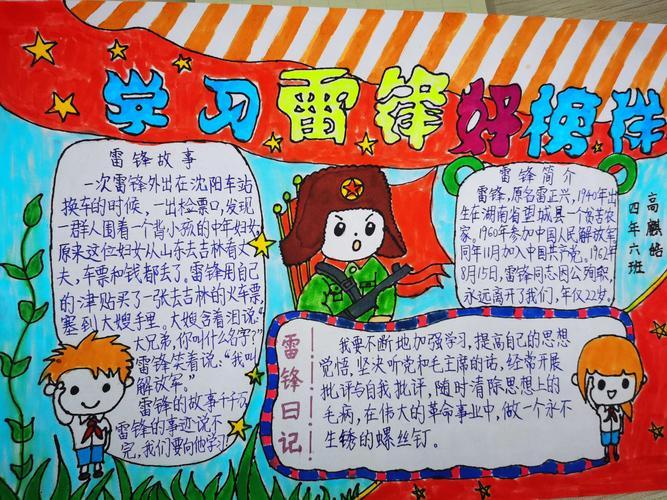 学习雷锋好榜样
雷锋故事
一次雷锋外出在沈阳车站
换车的时候，一出检票口，发现
一群人围着一个背小孩的中年妇女
原来这位妇女从山东去吉林看丈
夫，车票和钱都丢了。雷锋用自己
的津贴买了一张去吉林的火车票，
塞到大嫂手里。大嫂含着泪说：“
大兄弟，你叫什么名字？”
雷锋笑着说：“我叫
解放军”
雷锋的故事千千万
雷锋的事迹说不
完，我们要向他学习
雷锋简介
雷锋，原名雷正兴，1940年出
生在湖南省望城县一个贫苦农
家。1960年参加中国人民解放军
同年11月加入中国共产党。1962年
8月15日，雷锋同志因公殉职，
永远离开了我们，年仅22岁。
高麒皓
四年六班
雷锋日记
我要不断地加强学习，提高自己的思想
觉悟，坚决听党和毛主席的话，经常开展
批评与自我批评，随时清除思想上的
毛病，在伟大的革命事业中，做一个永不
生锈的螺丝钉。